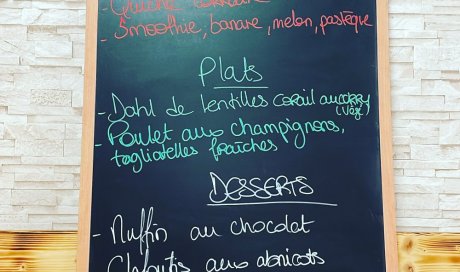 - Smoothie, banane, melon, pastèque
Plats
- Dahl de lentilles corail au curry
(Végé)
- Poulet aux champignons,
tagliatelles fraîches
DESSERTS
- Muffin au chocolat
Clafoutis aux abricots